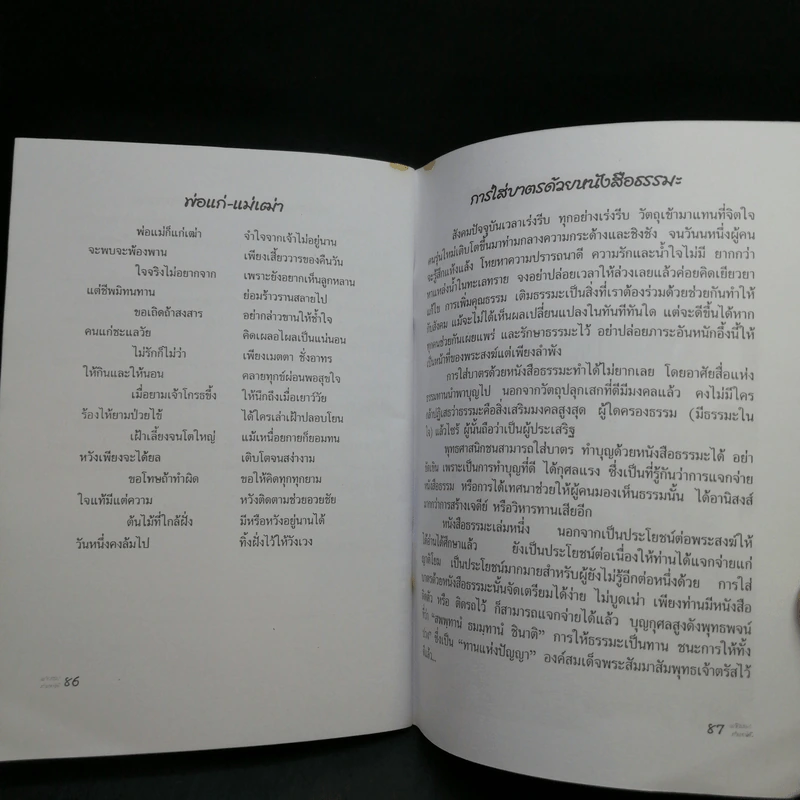 พ่อแก่-แม่เฒ่า
พ่อแม่ก็แก่เฒ่า จำใจจากเจ้าไม่อยู่นาน
จะพบจะพ้องพาน เพียงเสี้ยววารของคืนวัน
ใจจริงไม่อยากจาก เพราะยังอยากเห็นลูกหลาน
แต่ชีพมิทนทาน ย่อมร้าวรานสลายไป
ขอเถิดถ้าสงสาร อย่ากล่าวขานให้ช้ำใจ
คนแก่ชะแลวัย คิดเผลอไผลเป็นแน่นอน
ไม่รักก็ไม่ว่า เพียงเมตตา ชั่งอาทร
ให้กินและให้นอน คลายทุกข์ผ่อนพอสุขใจ
เมื่อยามเจ้าโกรธขึ้ง ให้นึกถึงเมื่อเยาว์วัย
ร้องไห้ยามป่วยไข้ ได้ใครเล่าเฝ้าปลอบโยน
เฝ้าเลี้ยงจนโตใหญ่ แม้เหนื่อยกายก็ยอมทน
หวังเพียงจะได้ยล เติบโตจนสง่างาม
ขอโทษถ้าทำผิด ขอให้คิดทุกทุกยาม
ใจแท้มีแต่ความ หวังติดตามช่วยอวยชัย
ต้นไม้ที่ใกล้ฝั่ง มีหรือหวังอยู่นานได้
วันหนึ่งคงล้มไป ทิ้งฝั่งไว้ให้วังเวง
86
การใส่บาตรด้วยหนังสือธรรมะ
สังคมปัจจุบันเวลาเร่งรีบ ทุกอย่างเร่งรีบ วัตถุเข้ามาแทนที่จิตใจ
คนรุ่นใหม่เติบโตขึ้นมาท่ามกลางความกระด้างและชิงชัง จนวันหนึ่งผู้คน
จะรู้สึกแห้งแล้ง โหยหาความปรารถนาดี ความรักและน้ำใจไม่มี ยากกว่า
หาแหล่งน้ำในทะเลทราย จงอย่าปล่อยเวลาให้ล่วงเลยแล้วค่อยคิดเยียวยา
แก้ไข การเพิ่มคุณธรรม เติมธรรมะเป็นสิ่งที่เราต้องร่วมด้วยช่วยกันทำให้
กับสังคม แม้จะไม่ได้เห็นผลเปลี่ยนแปลงในทันทีทันใด แต่จะดีขึ้นได้หาก
ทุกคนช่วยกันเผยแพร่ และรักษาธรรมะไว้ อย่าปล่อยภาระอันหนักอึ้งนี้ให้
เป็นหน้าที่ของพระสงฆ์แต่เพียงลำพัง
การใส่บาตรด้วยหนังสือธรรมะทำได้ไม่ยากเลย โดยอาศัยสื่อแห่ง
ธรรมทานนำพาบุญไป นอกจากวัตถุปลุกเสกที่ดีมีมงคลแล้ว คงไม่มีใคร
กล้าปฏิเสธว่าธรรมะคือสิ่งเสริมมงคลสูงสุด ผู้ใดครองธรรม (มีธรรมะใน
ใจ) แล้วไซร้ ผู้นั้นถือว่าเป็นผู้ประเสริฐ
พุทธศาสนิกชนสามารถใส่บาตร ทำบุญด้วยหนังสือธรรมะได้ อย่า
ขัดเขิน เพราะเป็นการทำบุญที่ดี ได้กุศลแรง ซึ่งเป็นที่รู้กันว่าการแจกจ่าย
หนังสือธรรม หรือการได้เทศนาช่วยให้ผู้คนมองเห็นธรรมนั้น ได้อานิสงส์
มากกว่าการสร้างเจดีย์ หรือวิหารทานเสียอีก
หนังสือธรรมะเล่มหนึ่ง นอกจากเป็นประโยชน์ต่อพระสงฆ์ให้
ได้อ่านได้ศึกษาแล้ว ยังเป็นประโยชน์ต่อเนื่องให้ท่านได้แจกจ่ายแก่
ญาติโยม เป็นประโยชน์มากมายสำหรับผู้ยังไม่รู้อีกต่อหนึ่งด้วย การใส่
บาตรด้วยหนังสือธรรมะนั้นจัดเตรียมได้ง่าย ไม่บูดเน่า เพียงท่านมีหนังสือ
ติดตัว หรือ ติดรถไว้ ก็สามารถแจกจ่ายได้แล้ว บุญกุศลสูงดังพุทธพจน์
"สพฺพทานํ ธมฺมทานํ ชินาติ" การให้ธรรมะเป็นทาน ชนะการให้ทั้ง
ปวง" ซึ่งเป็น "ทานแห่งปัญญา" องค์สมเด็จพระสัมมาสัมพุทธเจ้าตรัสไว้
87